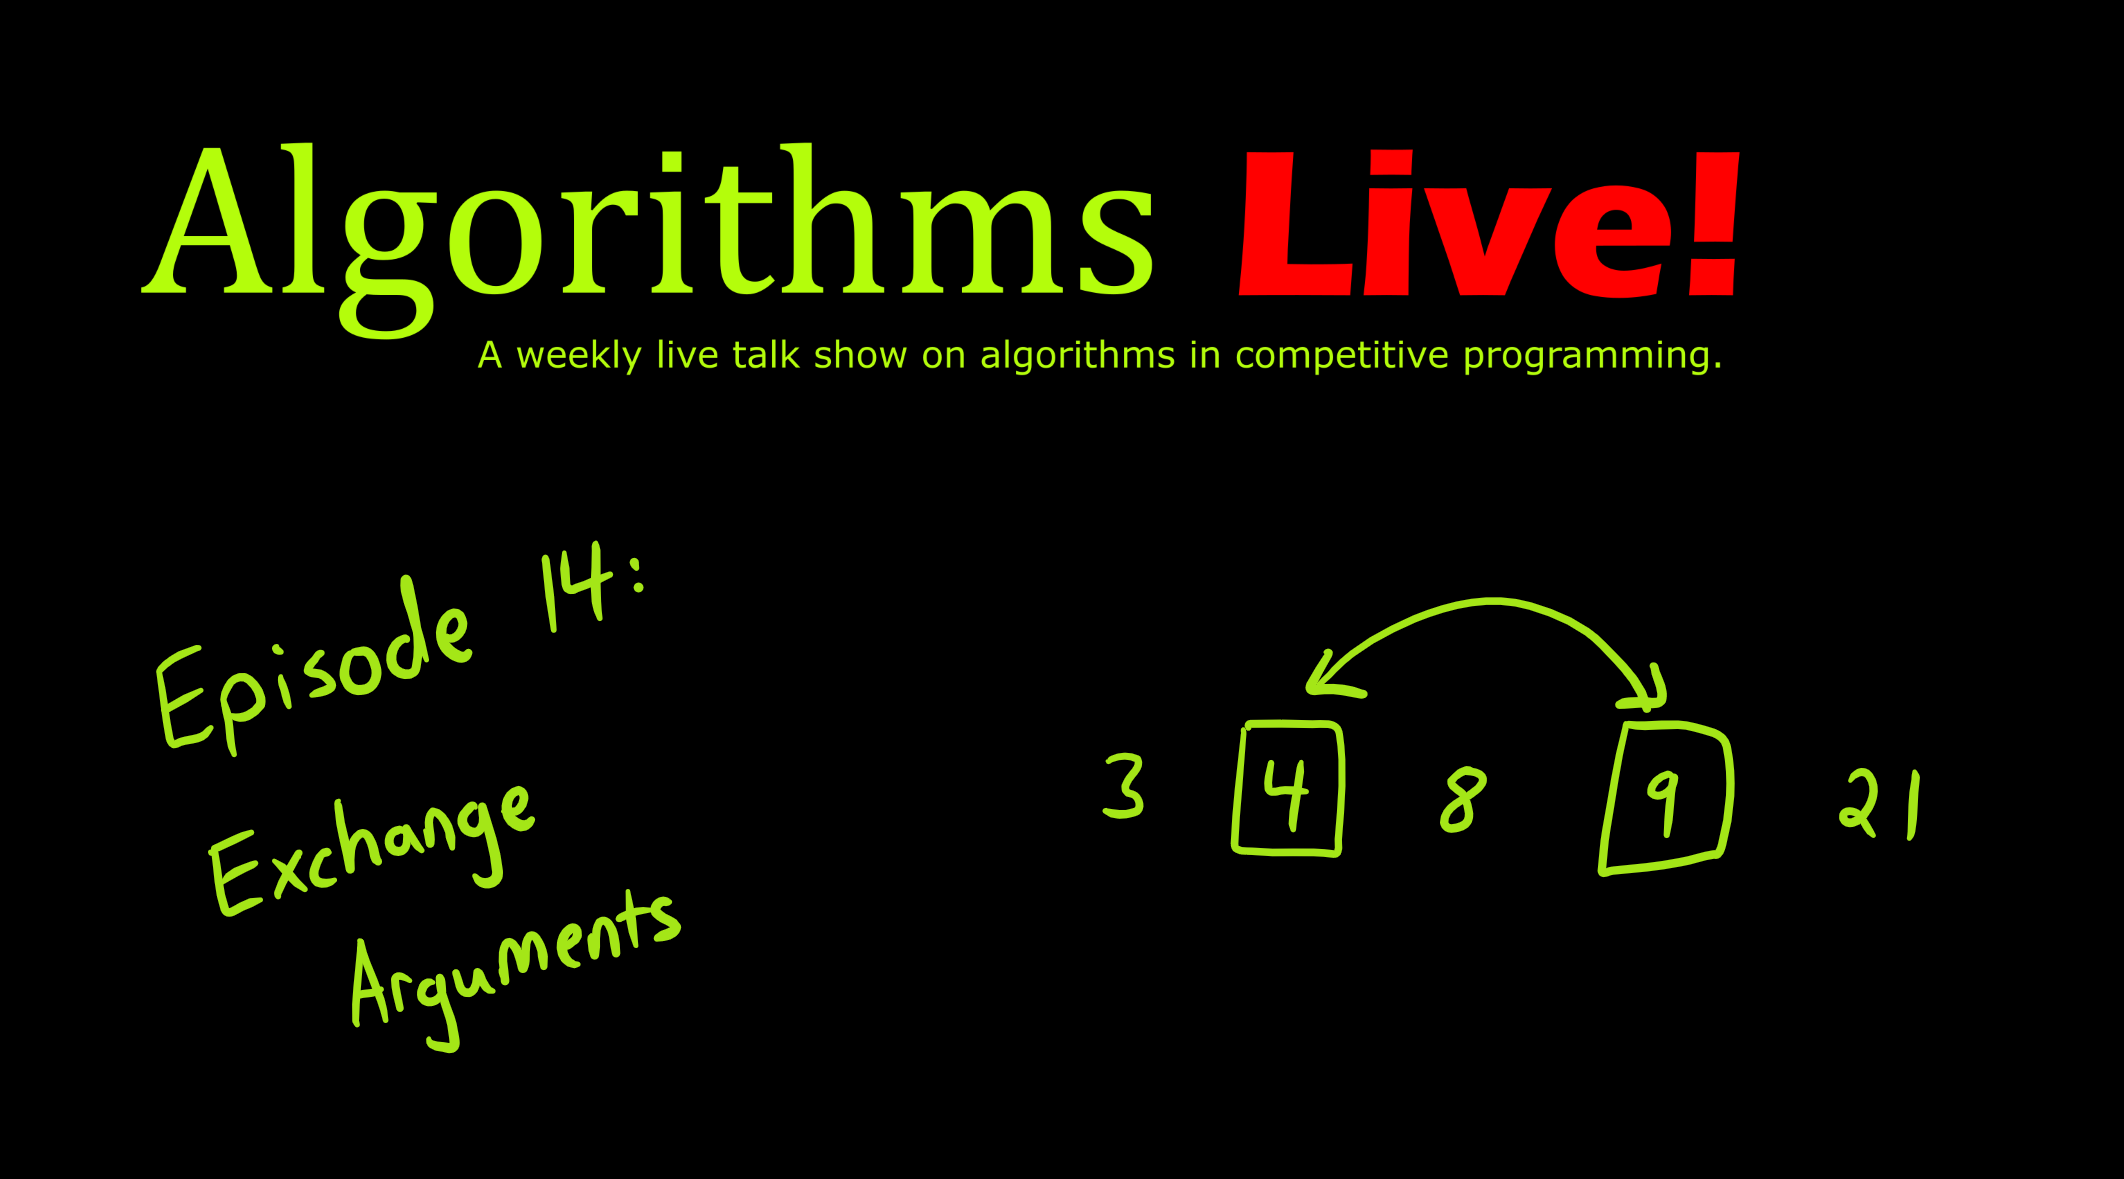 Algorithms Live!
A weekly live talk show on algorithms in competitive programming.
Episode 14:
Exchange
Arguments
3 4 8 9 21